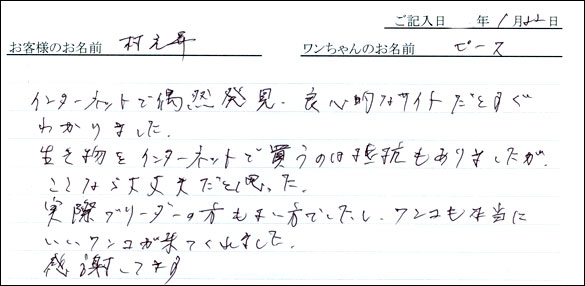 ご記入日 年 1月22日
お客様のお名前 村元昇 ワンちゃんのお名前 ピース
インターネットで偶然発見、良心的なサイトだとすぐ
わかりました。
生き物をインターネットで買うのは抵抗もありましたが、
ここなら大丈夫だと思った。
実際ブリーダーの方もよい方でしたし、ワンコも本当に
いいワンコが来てくれました。
感謝してます